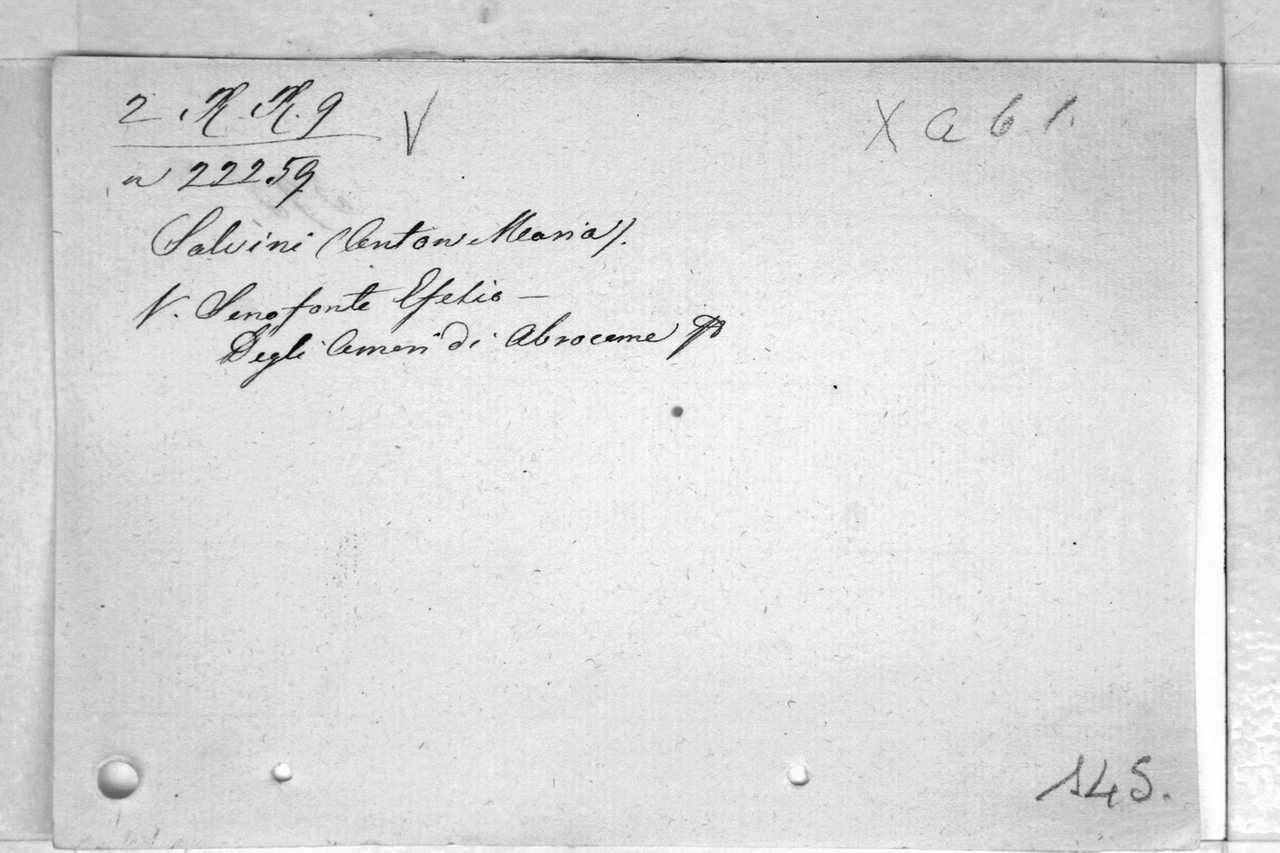 2 K.K.9 V X a b 1.
n 22259
Salvini (Anton Maria).
V. Senofonte Efesio —
Degli Amori di Abrocome
145.